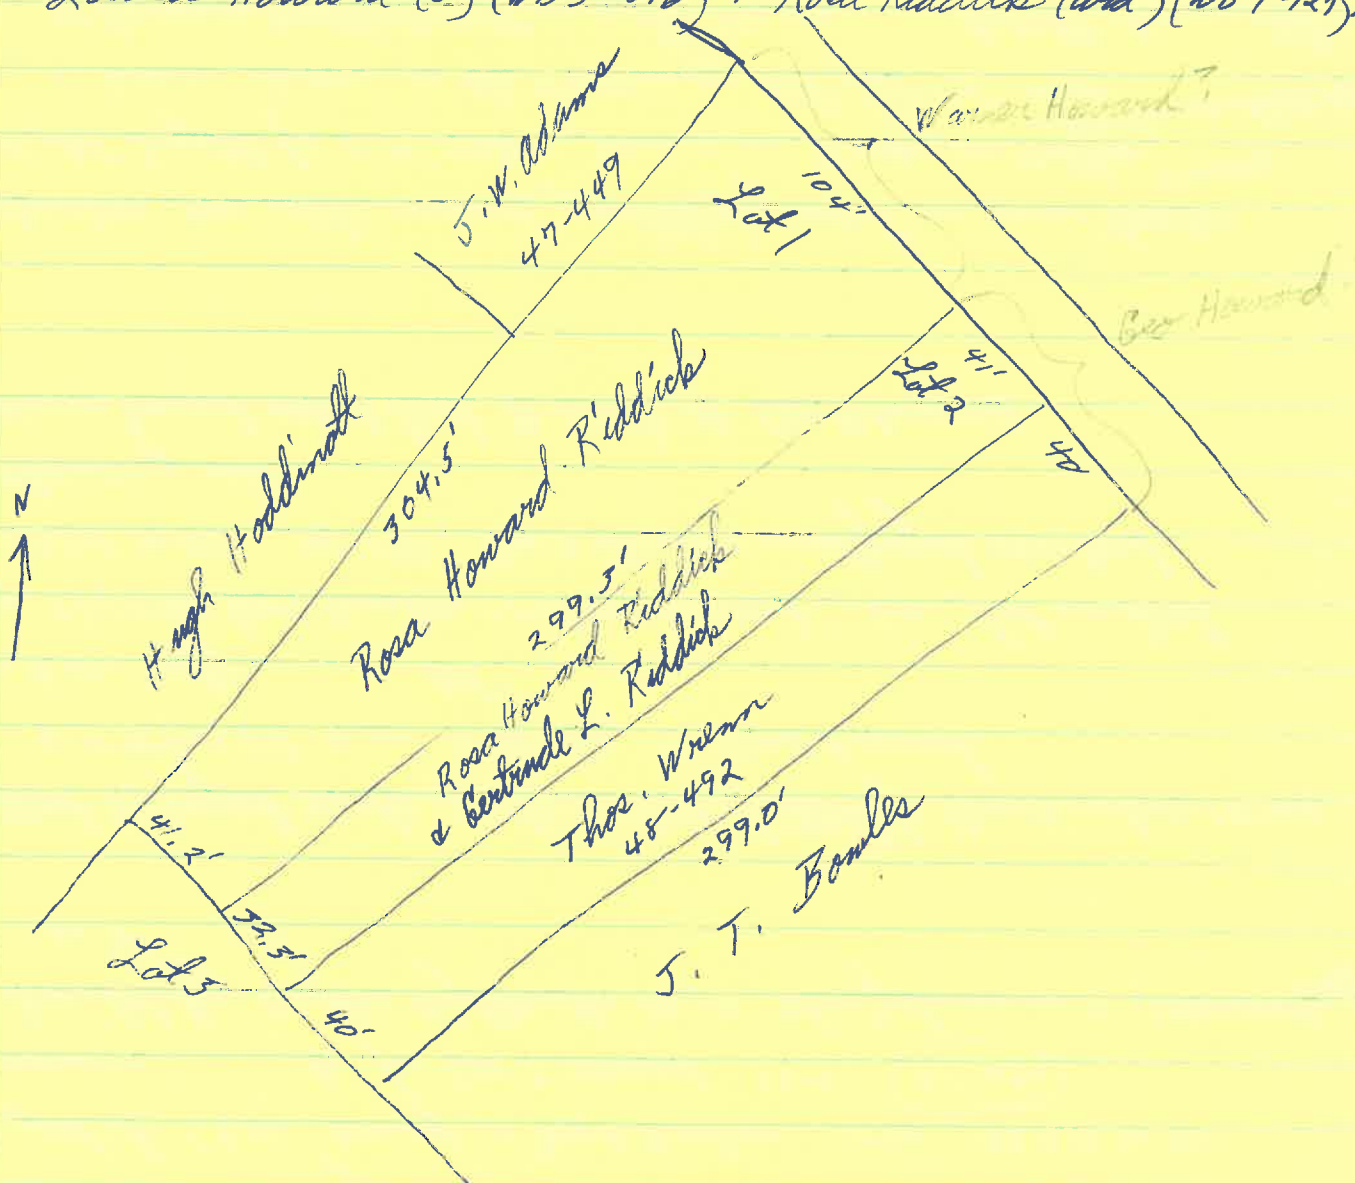 Howard
Rosa Riddick
Warner Howard?
J. W. Adams
47-449
104'
Lot 1
Geo Howard
41'
Lot 2
40
Hugh Hoddinott
N
304.5'
Rosa Howard Riddick
299.3'
Rosa Howard Riddick
& Gertrude L. Riddick
Thos. Wrenn
48-492
299.0'
J. T. Bowles
41.2'
Lot 3
40'